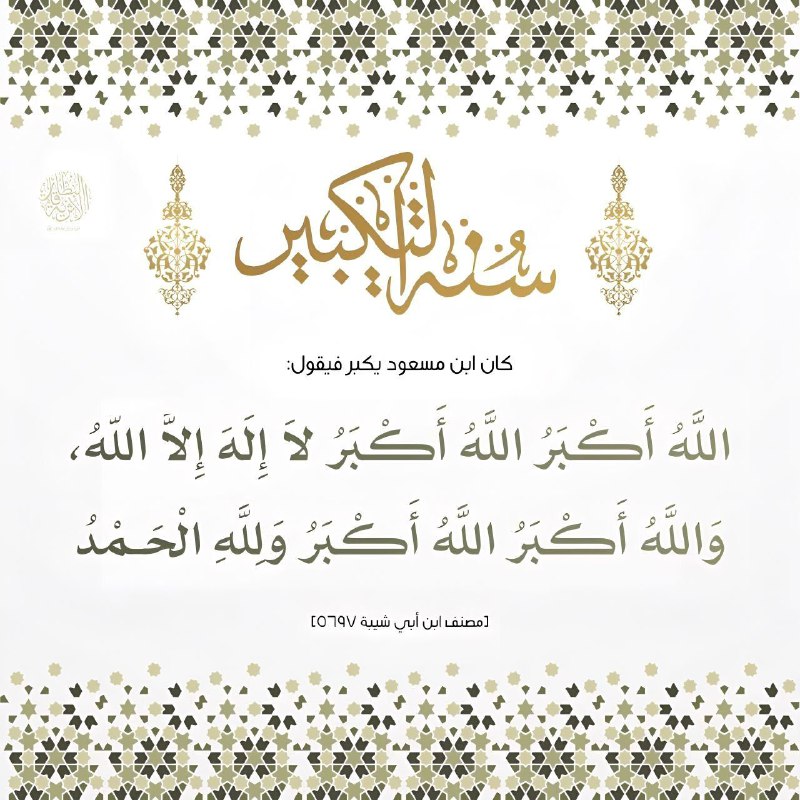 سنة التكبير
كان ابن مسعود يكبر فيقول:
اللَّهُ أَكْبَرُ اللَّهُ أَكْبَرُ لاَ إِلَهَ إِلاَّ اللَّهُ،
وَاللَّهُ أَكْبَرُ اللَّهُ أَكْبَرُ وَلِلَّهِ الْحَمْدُ
[مصنف ابن أبي شيبة ٥٦٩٧]